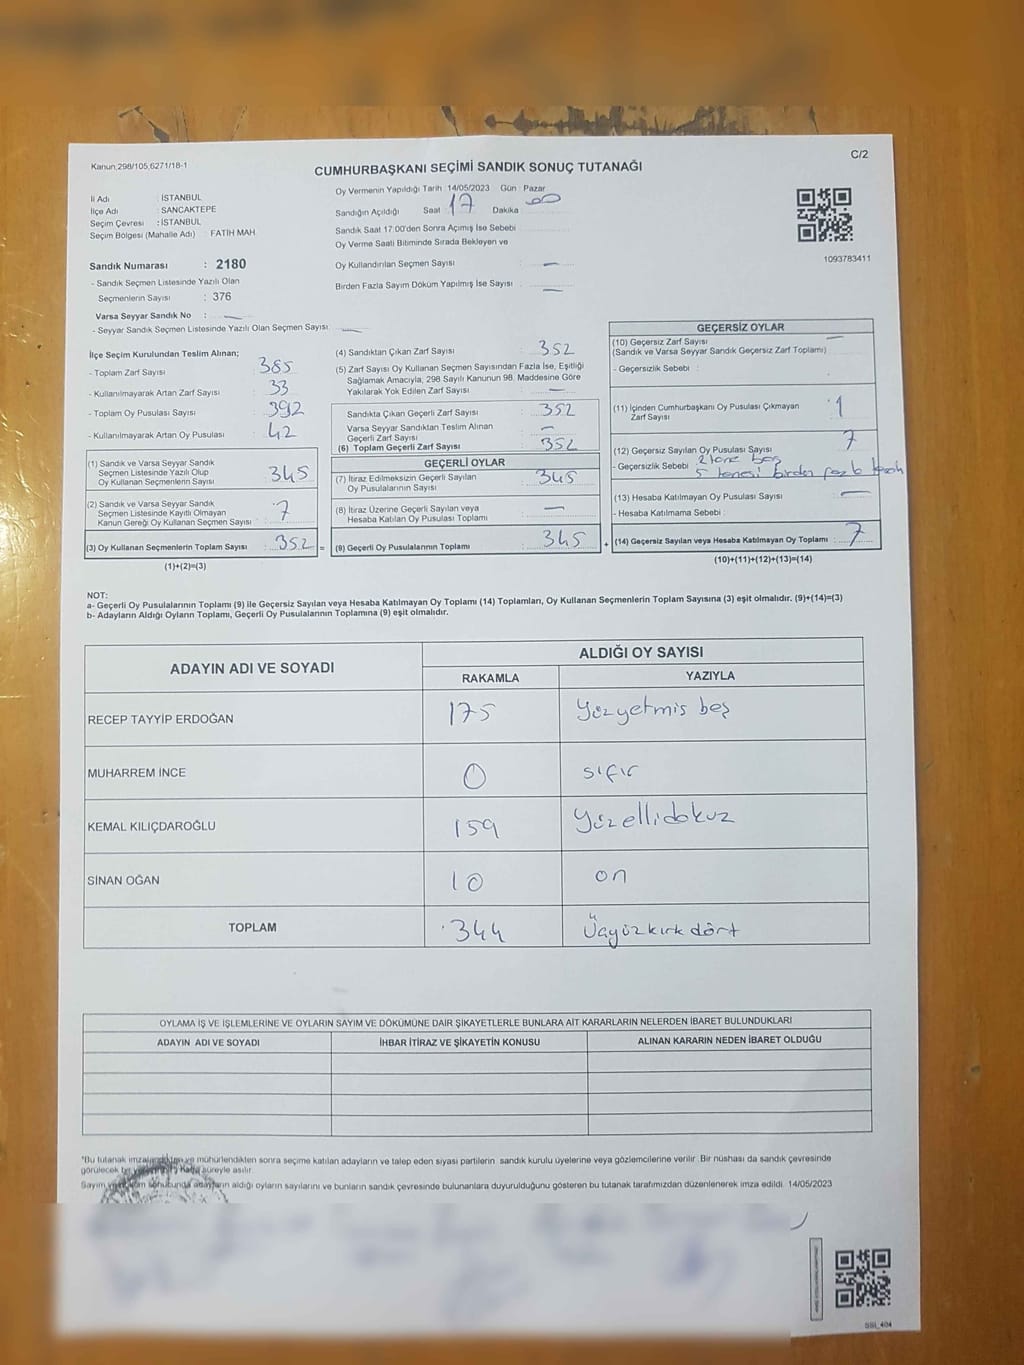 Kanun;298/105,6271/18-1
C/2
CUMHURBAŞKANI SEÇİMİ SANDIK SONUÇ TUTANAĞI
İl Adı : İSTANBUL
İlçe Adı : SANCAKTEPE
Seçim Çevresi : İSTANBUL
Seçim Bölgesi (Mahalle Adı) : FATİH MAH
Sandık Numarası : 2180
- Sandık Seçmen Listesinde Yazılı Olan
Seçmenlerin Sayısı : 376
Varsa Seyyar Sandık No : —
- Seyyar Sandık Seçmen Listesinde Yazılı Olan Seçmen Sayısı : —
Oy Vermenin Yapıldığı Tarih : 14/05/2023 Gün : Pazar
Sandığın Açıldığı Saat 17 Dakika 00
Sandık Saat 17:00'den Sonra Açımış İse Sebebi
Oy Verme Saati Bitiminde Sırada Bekleyen ve
Oy Kullandırılan Seçmen Sayısı : —
Birden Fazla Sayım Döküm Yapılmış İse Sayısı : —
1093783411
İlçe Seçim Kurulundan Teslim Alınan;
- Toplam Zarf Sayısı : 385
- Kullanılmayarak Artan Zarf Sayısı : 33
- Toplam Oy Pusulası Sayısı : 392
- Kullanılmayarak Artan Oy Pusulası : 42
(1) Sandık ve Varsa Seyyar Sandık
Seçmen Listesinde Yazılı Olup
Oy Kullanan Seçmenlerin Sayısı : 345
(2) Sandık ve Varsa Seyyar Sandık
Seçmen Listesinde Kayıtlı Olmayan
Kanun Gereği Oy Kullanan Seçmen Sayısı : 7
(3) Oy Kullanan Seçmenlerin Toplam Sayısı : 352 =
(1)+(2)=(3)
(4) Sandıktan Çıkan Zarf Sayısı : 352
(5) Zarf Sayısı Oy Kullanan Seçmen Sayısından Fazla İse, Eşitliği
Sağlamak Amacıyla, 298 Sayılı Kanunun 98. Maddesine Göre
Yakılarak Yok Edilen Zarf Sayısı : —
Sandıkta Çıkan Geçerli Zarf Sayısı : 352
Varsa Seyyar Sandıktan Teslim Alınan
Geçerli Zarf Sayısı : —
(6) Toplam Geçerli Zarf Sayısı : 352
GEÇERLİ OYLAR
(7) İtiraz Edilmeksizin Geçerli Sayılan
Oy Pusulalarının Sayısı : 345
(8) İtiraz Üzerine Geçerli Sayılan veya
Hesaba Katılan Oy Pusulası Toplamı : —
(9) Geçerli Oy Pusulalarının Toplamı : 345 +
GEÇERSİZ OYLAR
(10) Geçersiz Zarf Sayısı —
(Sandık ve Varsa Seyyar Sandık Geçersiz Zarf Toplamı)
- Geçersizlik Sebebi :
(11) İçinden Cumhurbaşkanı Oy Pusulası Çıkmayan
Zarf Sayısı : 1
(12) Geçersiz Sayılan Oy Pusulası Sayısı : 7
- Geçersizlik Sebebi : 2 tane boş
5 tanesi birden fazla
(13) Hesaba Katılmayan Oy Pusulası Sayısı : —
- Hesaba Katılmama Sebebi :
(14) Geçersiz Sayılan veya Hesaba Katılmayan Oy Toplamı : 7
(10)+(11)+(12)+(13)=(14)
NOT:
a- Geçerli Oy Pusulalarının Toplamı (9) ile Geçersiz Sayılan veya Hesaba Katılmayan Oy Toplamı (14) Toplamları, Oy Kullanan Seçmenlerin Toplam Sayısına (3) eşit olmalıdır. (9)+(14)=(3)
b- Adayların Aldığı Oyların Toplamı, Geçerli Oy Pusulalarının Toplamına (9) eşit olmalıdır.
ADAYIN ADI VE SOYADI
ALDIĞI OY SAYISI
RAKAMLA YAZIYLA
RECEP TAYYİP ERDOĞAN 175 Yüzyetmiş beş
MUHARREM İNCE 0 sıfır
KEMAL KILIÇDAROĞLU 159 Yüzellidokuz
SİNAN OĞAN 10 on
TOPLAM 344 Üçyüzkırk dört
OYLAMA İŞ VE İŞLEMLERİNE VE OYLARIN SAYIM VE DÖKÜMÜNE DAİR ŞİKAYETLERLE BUNLARA AİT KARARLARIN NELERDEN İBARET BULUNDUKLARI
ADAYIN ADI VE SOYADI İHBAR İTİRAZ VE ŞİKAYETİN KONUSU ALINAN KARARIN NEDEN İBARET OLDUĞU
*Bu tutanak imzalandıktan ve mühürlendikten sonra seçime katılan adayların ve talep eden siyasi partilerin sandık kurulu üyelerine veya gözlemcilerine verilir. Bir nüshası da sandık çevresinde
görülecek bir süreyle asılır.
Sayım adayların aldığı oyların sayılarını ve bunların sandık çevresinde bulunanlara duyurulduğunu gösteren bu tutanak tarafımızdan düzenlenerek imza edildi. 14/05/2023
SSI_404